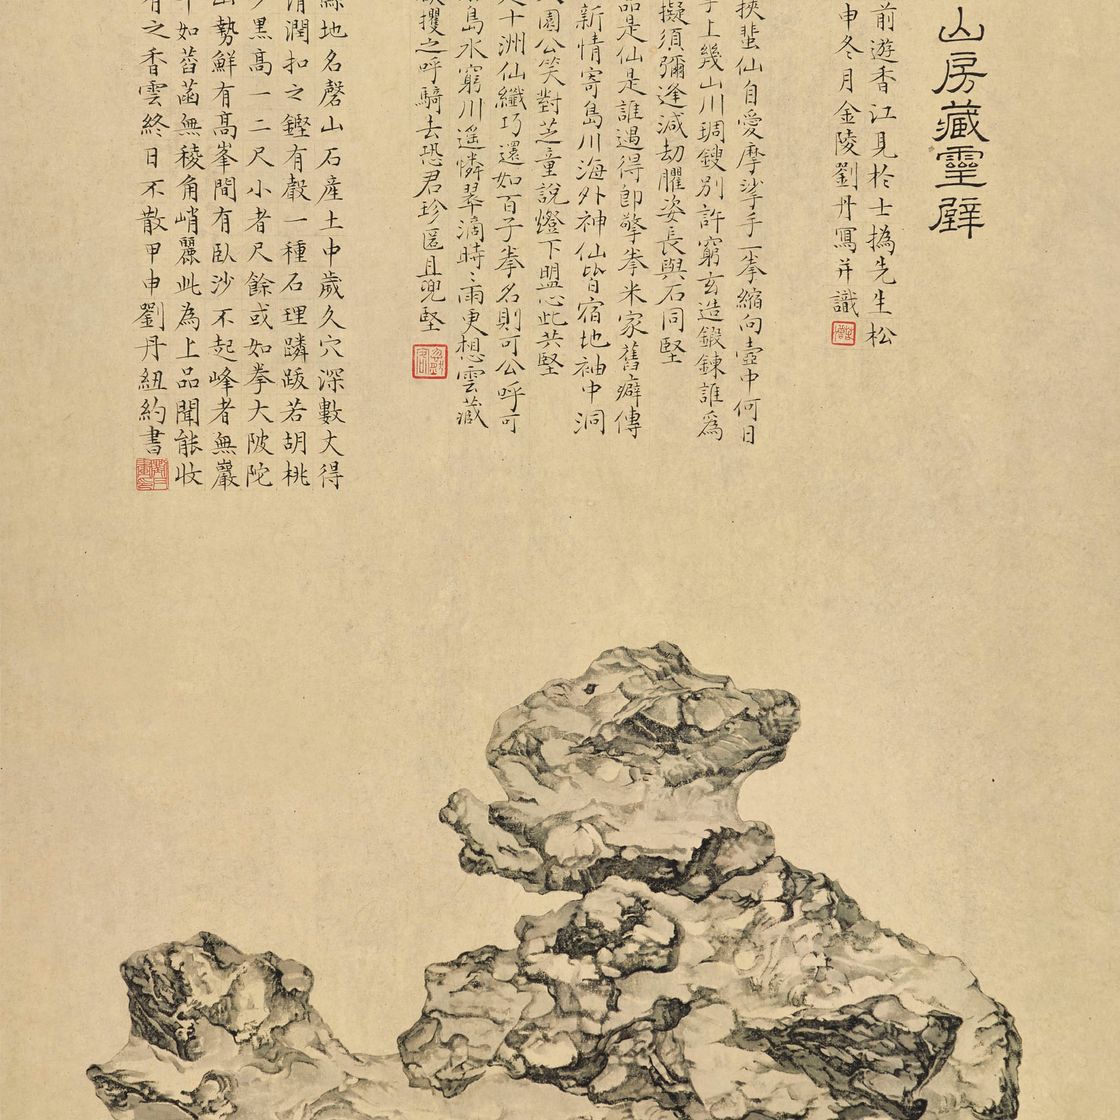 山房藏靈壁
前遊香江見於士撝先生松
申冬月金陵劉丹寫并識
挾蜚仙自愛摩挲手一拳縮向壺中何日
上幾山川琱鎪別許窮玄造鍛鍊誰為
擬須彌逢減劫臞姿長與石同堅
品是仙是誰遇得卽擎拳米家舊癖傳
新情寄島川海外神仙皆宿地袖中洞
園公笑對芝童說燈下盟心此共堅
十洲仙纖巧還如百子拳名則可公呼可
島水窮川遙憐翠滴時〻雨更想雲蔵
攫之呼騎去恐君珍匿且兜堅
地名磬山石產土中歲久穴深數丈得
清潤扣之鏗有聲一種石理蹸跋若胡桃
黑高一二尺小者尺餘或如拳大陂陀
山勢鮮有高峯間有臥沙不起峰者無巖
如萏菡無稜角峭麗此為上品聞能收
之香雲終日不散甲申劉丹紐約書